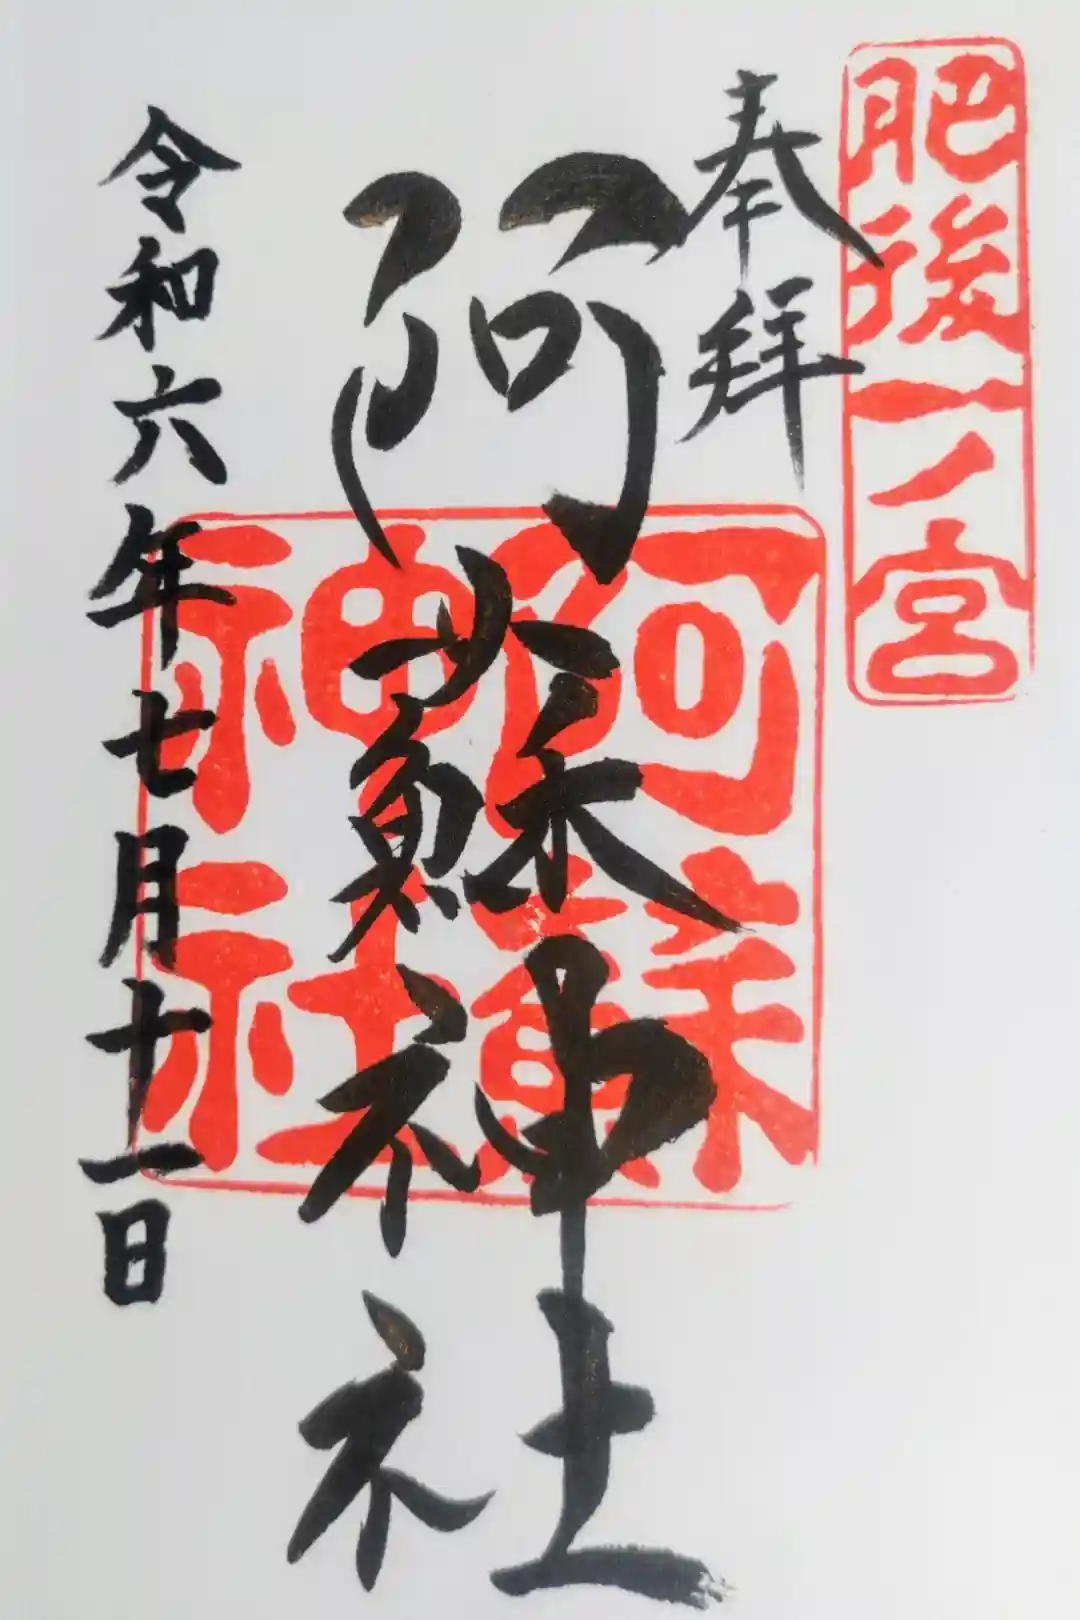 肥後一ノ宮
奉拝
阿蘇神社
阿蘇
神社
令和六年七月十一日